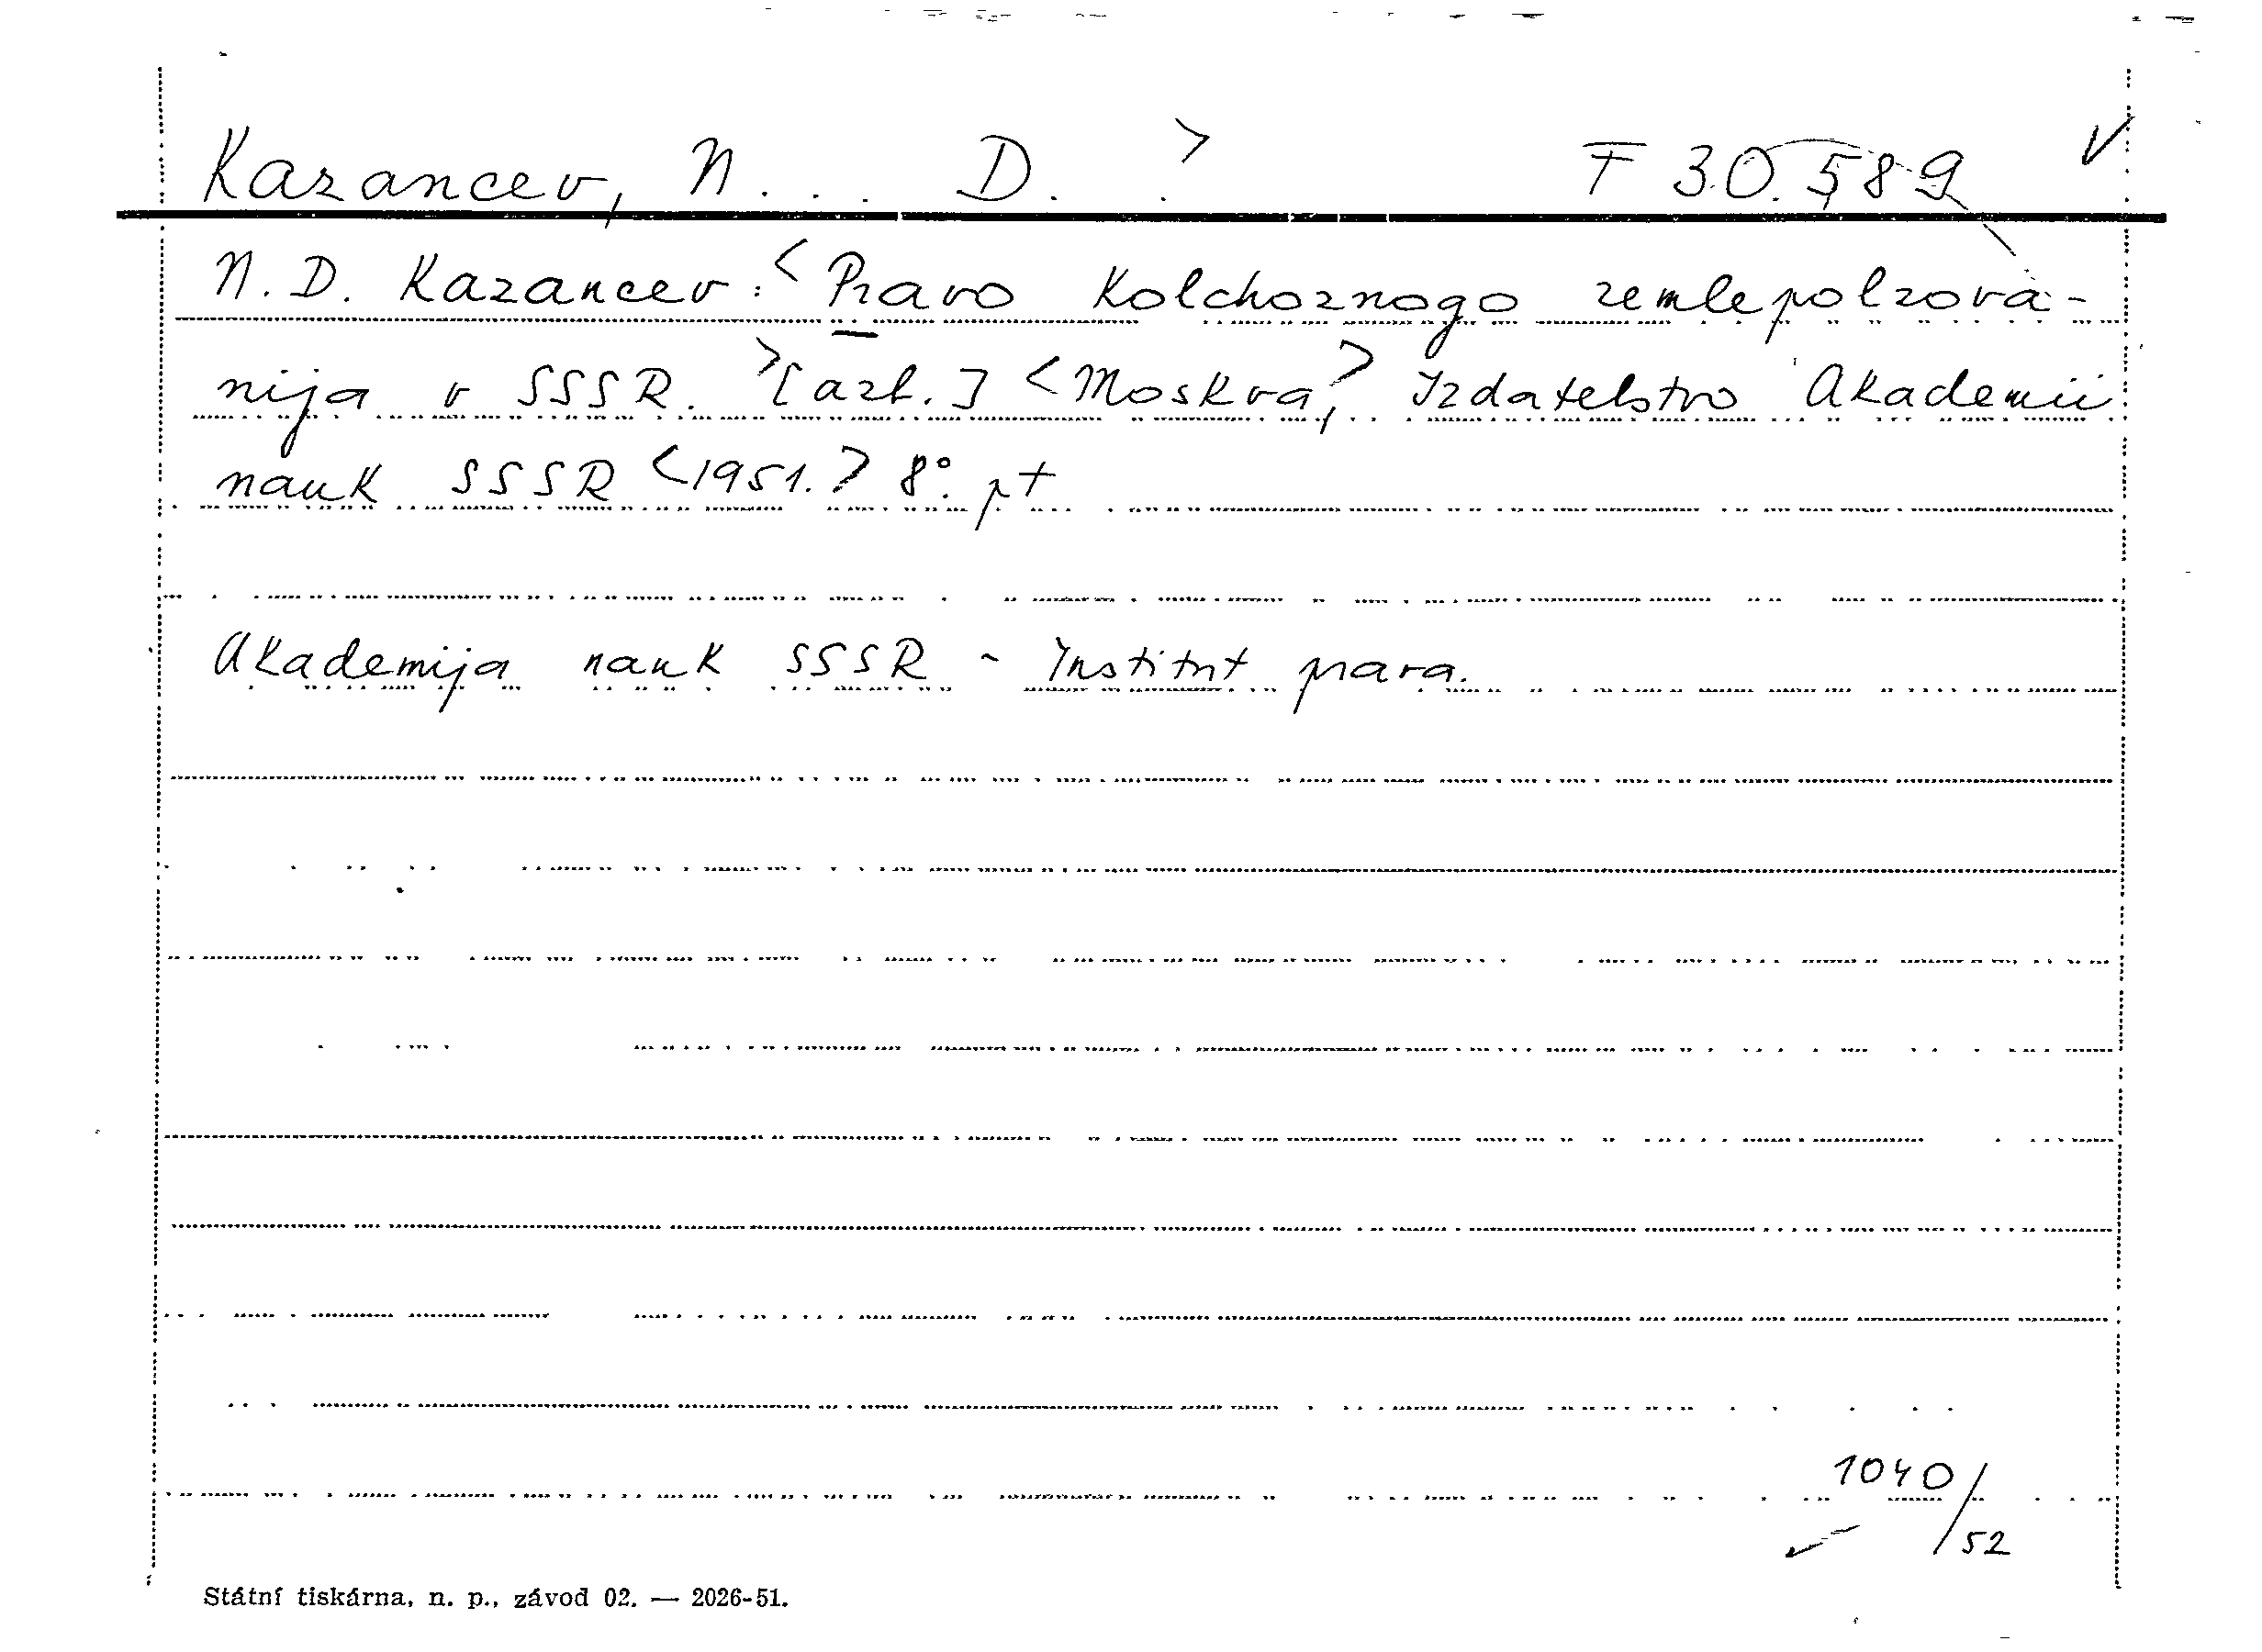 Kazancev, N . . D. . > F 30.589 √
N. D. Kazancev: <Pravo kolchoznogo zemlepolzova-
nija v SSSR. >[azb.] <Moskva,> Izdatelstvo Akademii
nauk SSSR <1951.> 8°. pt
Akademija nauk SSSR - Institut prava.
1040/52
Státní tiskárna, n. p., závod 02. — 2026-51.